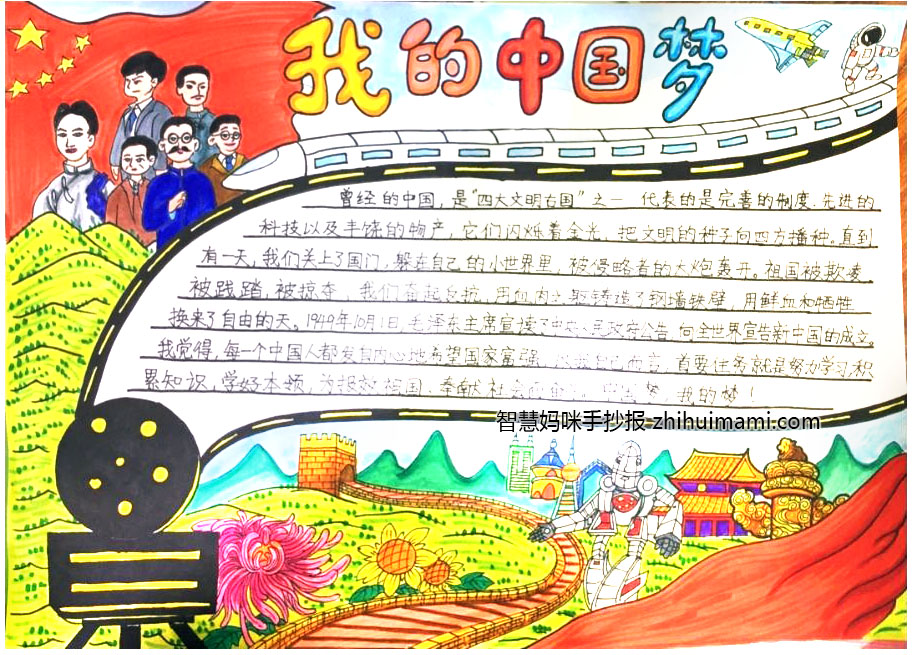 我的中国梦
曾经的中国，是“四大文明古国”之一 代表的是完善的制度.先进的
科技以及丰饶的物产，它们闪烁着金光，把文明的种子向四方播种。直到
有一天，我们关上了国门，躲在自己的小世界里，被侵略者的大炮轰开。祖国被欺凌
被践踏，被掠夺，我们奋起反抗，用血肉之躯铸造了钢墙铁壁，用鲜血和牺牲
换来了自由的天。1949年10月1日，毛泽东主席宣读了中央人民政府公告，向全世界宣告新中国的成立。
我觉得，每一个中国人都发自内心地希望国家富强，以我自己而言，首要任务就是努力学习，积
累知识，学好本领，为报效祖国，奉献社会 梦，我的梦！
智慧妈咪手抄报 zhihuimami.com